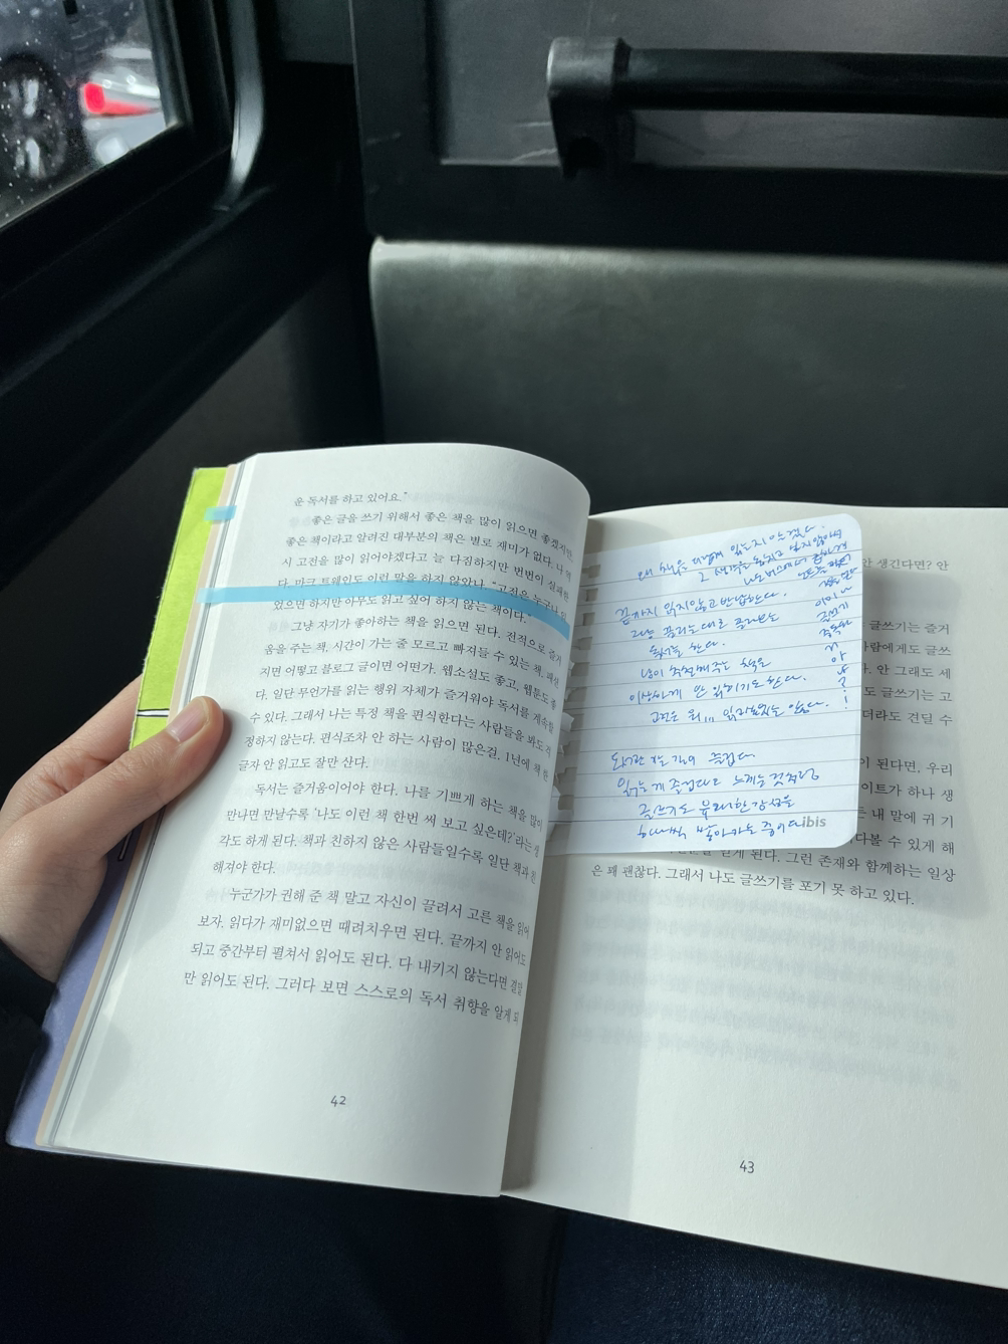 운 독서를 하고 있어요."
좋은 글을 쓰기 위해서 좋은 책을 많이 읽으면 좋겠지만,
좋은 책이라고 알려진 대부분의 책은 별로 재미가 없다. 나 역
시 고전을 많이 읽어야겠다고 늘 다짐하지만 번번이 실패한
다. 마크 트웨인도 이런 말을 하지 않았나. "고전은 누구나
었으면 하지만 아무도 읽고 싶어 하지 않는 책이다."
그냥 자기가 좋아하는 책을 읽으면 된다. 전적으로 즐거
움을 주는 책, 시간이 가는 줄 모르고 빠져들 수 있는 책.
지면 어떻고 블로그 글이면 어떤가. 웹소설도 좋고, 웹툰도 좋
다. 일단 무언가를 읽는 행위 자체가 즐거워야 독서를 계속할
수 있다. 그래서 나는 특정 책을 편식한다는 사람들을 봐도 걱
정하지 않는다. 편식조차 안 하는 사람이 많은걸. 1년에 책 한
글자 안 읽고도 잘만 산다.
독서는 즐거움이어야 한다. 나를 기쁘게 하는 책을 많이
만나면 만날수록 '나도 이런 책 한번 써 보고 싶은데?'라는 생
각도 하게 된다. 책과 친하지 않은 사람들일수록 일단 책과
해져야 한다.
누군가가 권해 준 책 말고 자신이 끌려서 고른 책을 읽어
보자. 읽다가 재미없으면 때려치우면 된다. 끝까지 안 읽어도
되고 중간부터 펼쳐서 읽어도 된다. 다 내키지 않는다면 결말
만 읽어도 된다. 그러다 보면 스스로의 독서 취향을 알게 되
42
왜 책을 이렇게 읽는지 알겠다.
끝까지 읽지않고 반납한다.
그냥 끌리는대로 골라보는
독서를 한다.
남이 추천해주는 책은
이상하게 안 읽히기도 한다.
도서관 갈 때 즐겁다
읽는게 즐겁다고 느끼는 것처럼
글쓰기도
ibis
안 생긴다면? 안
글쓰기는 즐거
람에게도 글쓰
안 그래도 세
도 글쓰기는 고
더라도 견딜 수
이 된다면, 우리
이트가 하나 생
는 내 말에 귀 기
다볼 수 있게 해
게 된다. 그런 존재와 함께하는 일상
은 꽤 괜찮다. 그래서 나도 글쓰기를 포기 못 하고 있다.
43